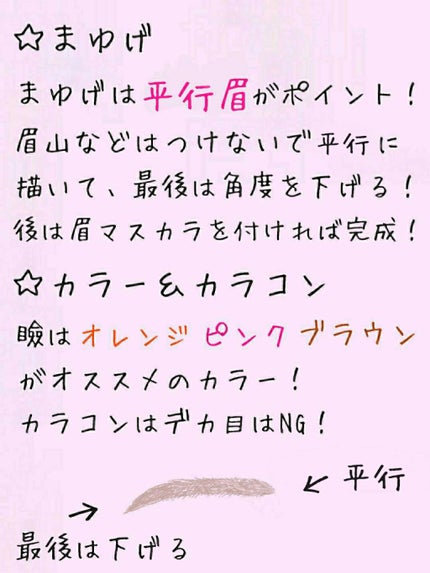 ☆まゆげ
まゆげは平行眉がポイント！
眉山などはつけないで平行に
描いて、最後は角度を下げる！
後は眉マスカラを付ければ完成！
☆カラー&カラコン
瞼はオレンジ ピンク ブラウン
がオススメのカラー！
カラコンはデカ目はNG！
← 平行
→
最後は下げる